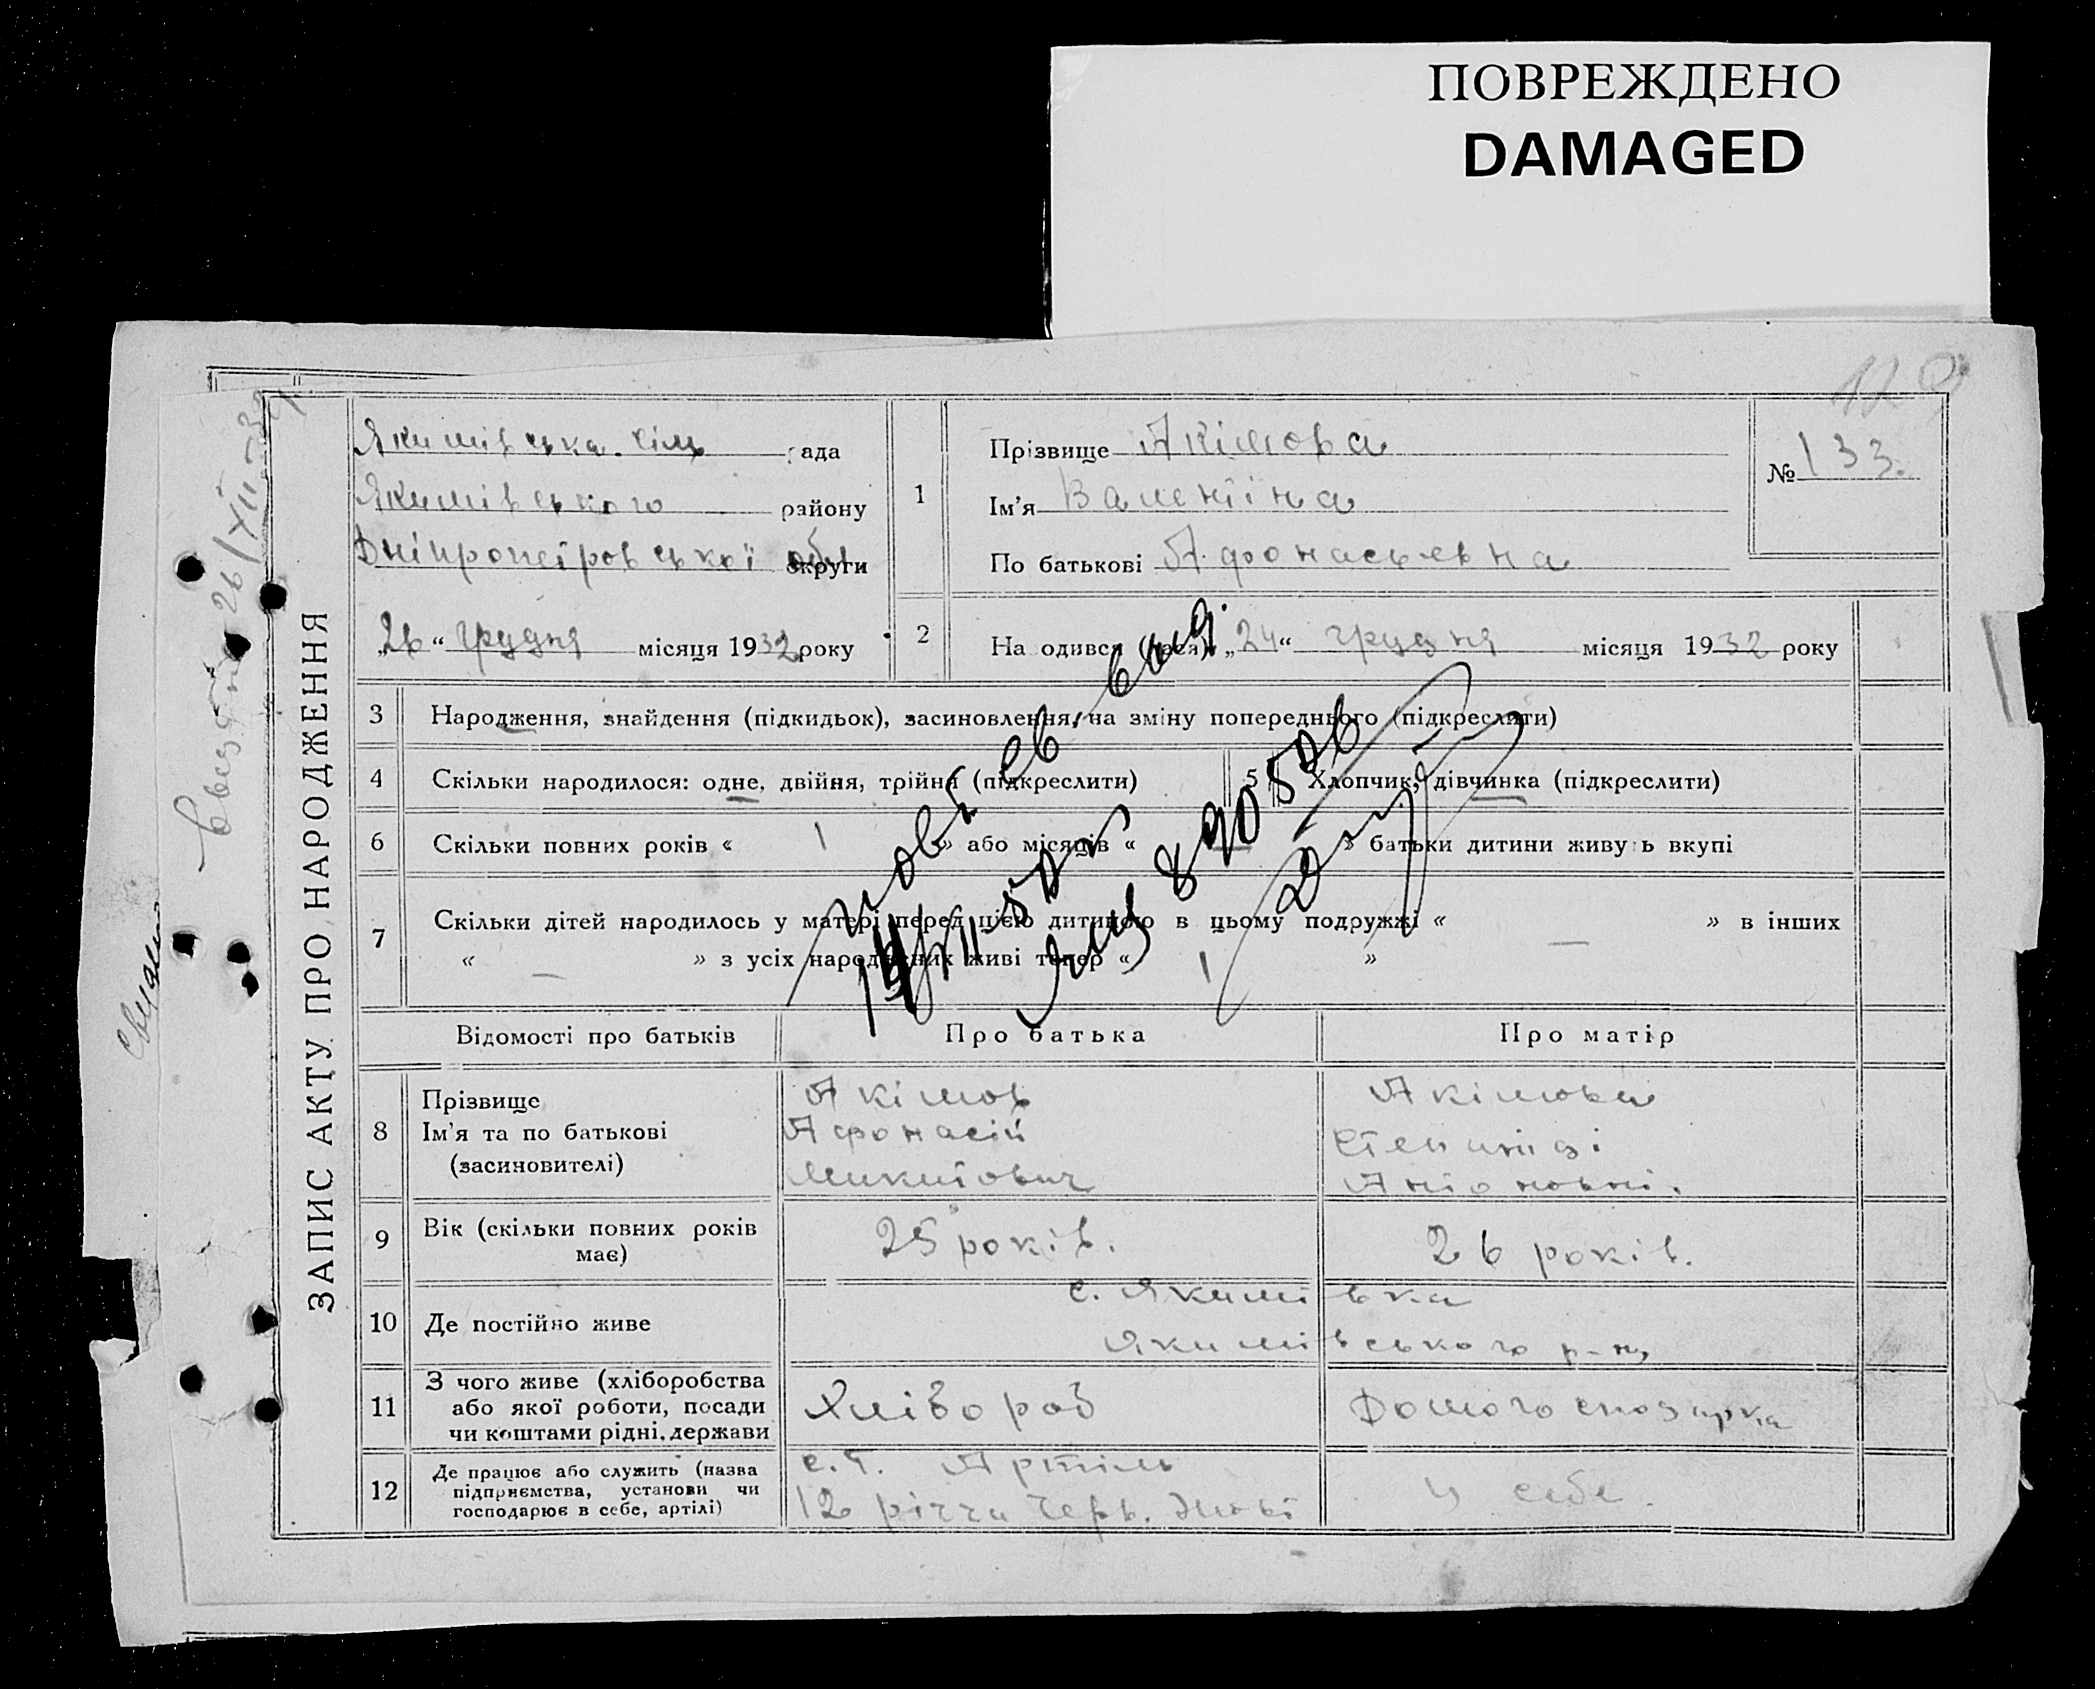 ПОВРЕЖДЕНО
DAMAGED
119
ЗАПИС АКТУ ПРО НАРОДЖЕННЯ
Якимівська сіль рада
Якимівського району
Дніпропетровської округи обл.
„26“ грудня місяця 1932 року
1
Прізвище Акімова
Ім’я Валентіна
По батькові Афонасьевна
№ 133.
2
На одився (лася) „24“ грудня місяця 1932 року
3 Народження, знайдення (підкидьок), засиновлення, на зміну попереднього (підкреслити)
4 Скільки народилося: одне, двійня, трійня (підкреслити)
5 Хлопчик, дівчинка (підкреслити)
6 Скільки повних років « 1 » або місяців « — » батьки дитини живу ь вкупі
7 Скільки дітей народилось у матері перед цією дитиною в цьому подружжі « — » в інших
« — » з усіх народжених живі тепер « 1 »
Відомості про батьків Про батька Про матір
8
Прізвище Акімов Акімова
Ім’я та по батькові Афонасій
(засиновителі) Микитович Антоновні.
9 Вік (скільки повних років має) 25 років. 26 років.
10 Де постійно живе с. Якимівка
Якимівського р-ну
11 З чого живе (хліборобства
або якої роботи, посади
чи коштами рідні, держави
Хлібороб Домогосподарка
12 Де працює або служить (назва
підприємства, установи чи
господарює в себе, артілі)
с.г. Артіль
12 річчя Черв.
у себе.